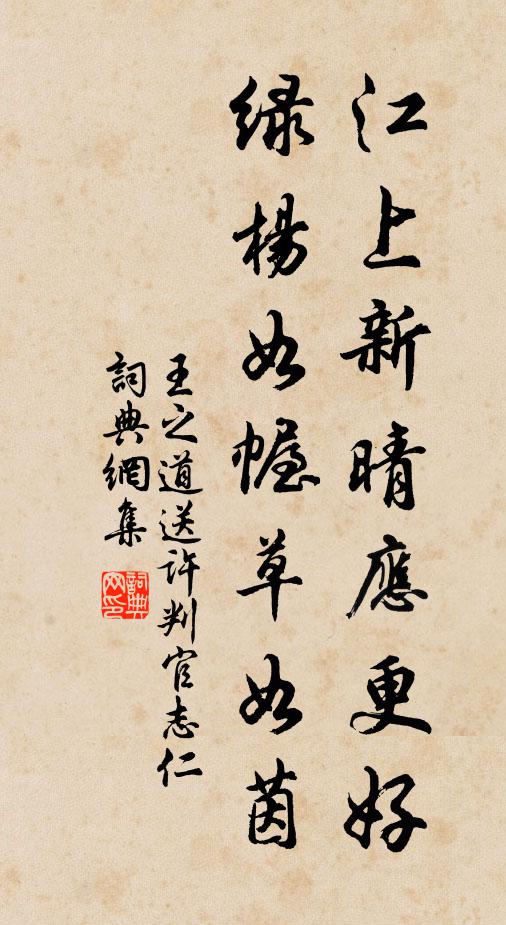 江上新晴應更好
綠楊如幄草如茵
王之道送許判官志仁
詞典網集
詞典網印